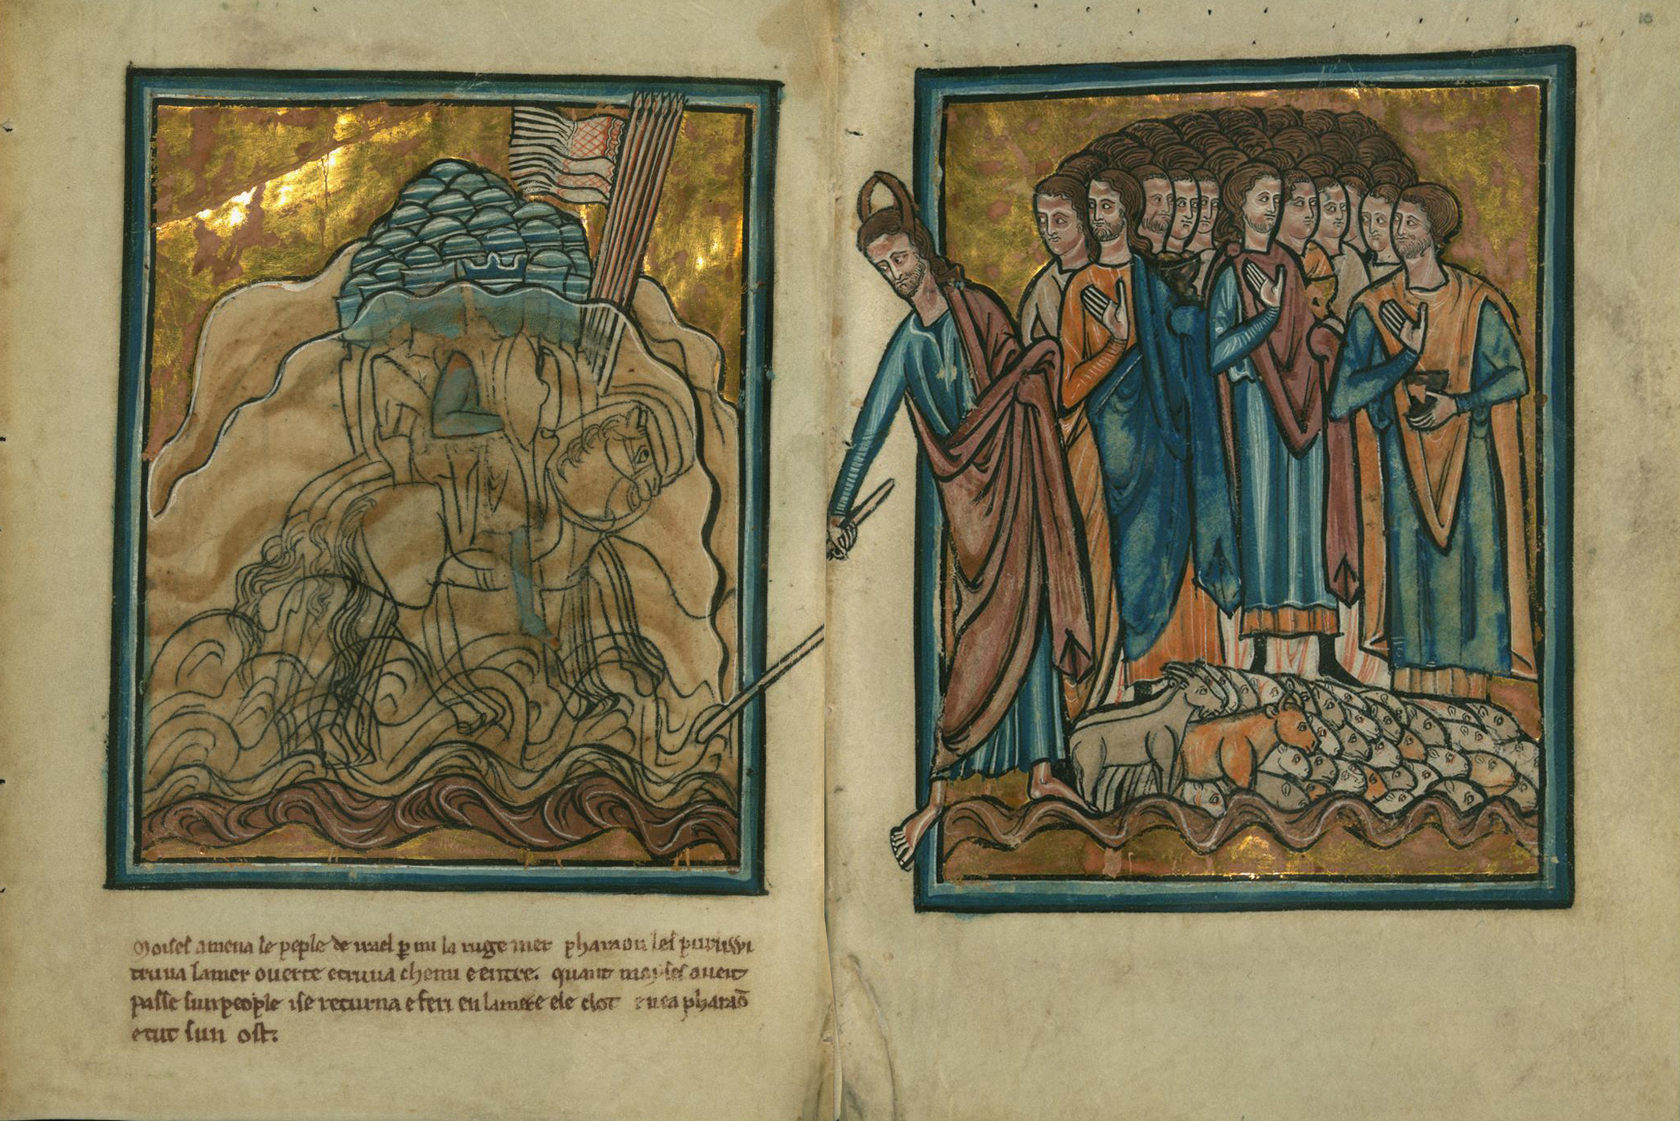 Moises amena le peple de israel p mi la ruge mer pharaon les pursiwi
truua lamer ouerte etruua chemi e entre. quant moyses aueit
passe sun people ise returna e feri en lamere ele clot e nea pharaō
etut sun ost.
18